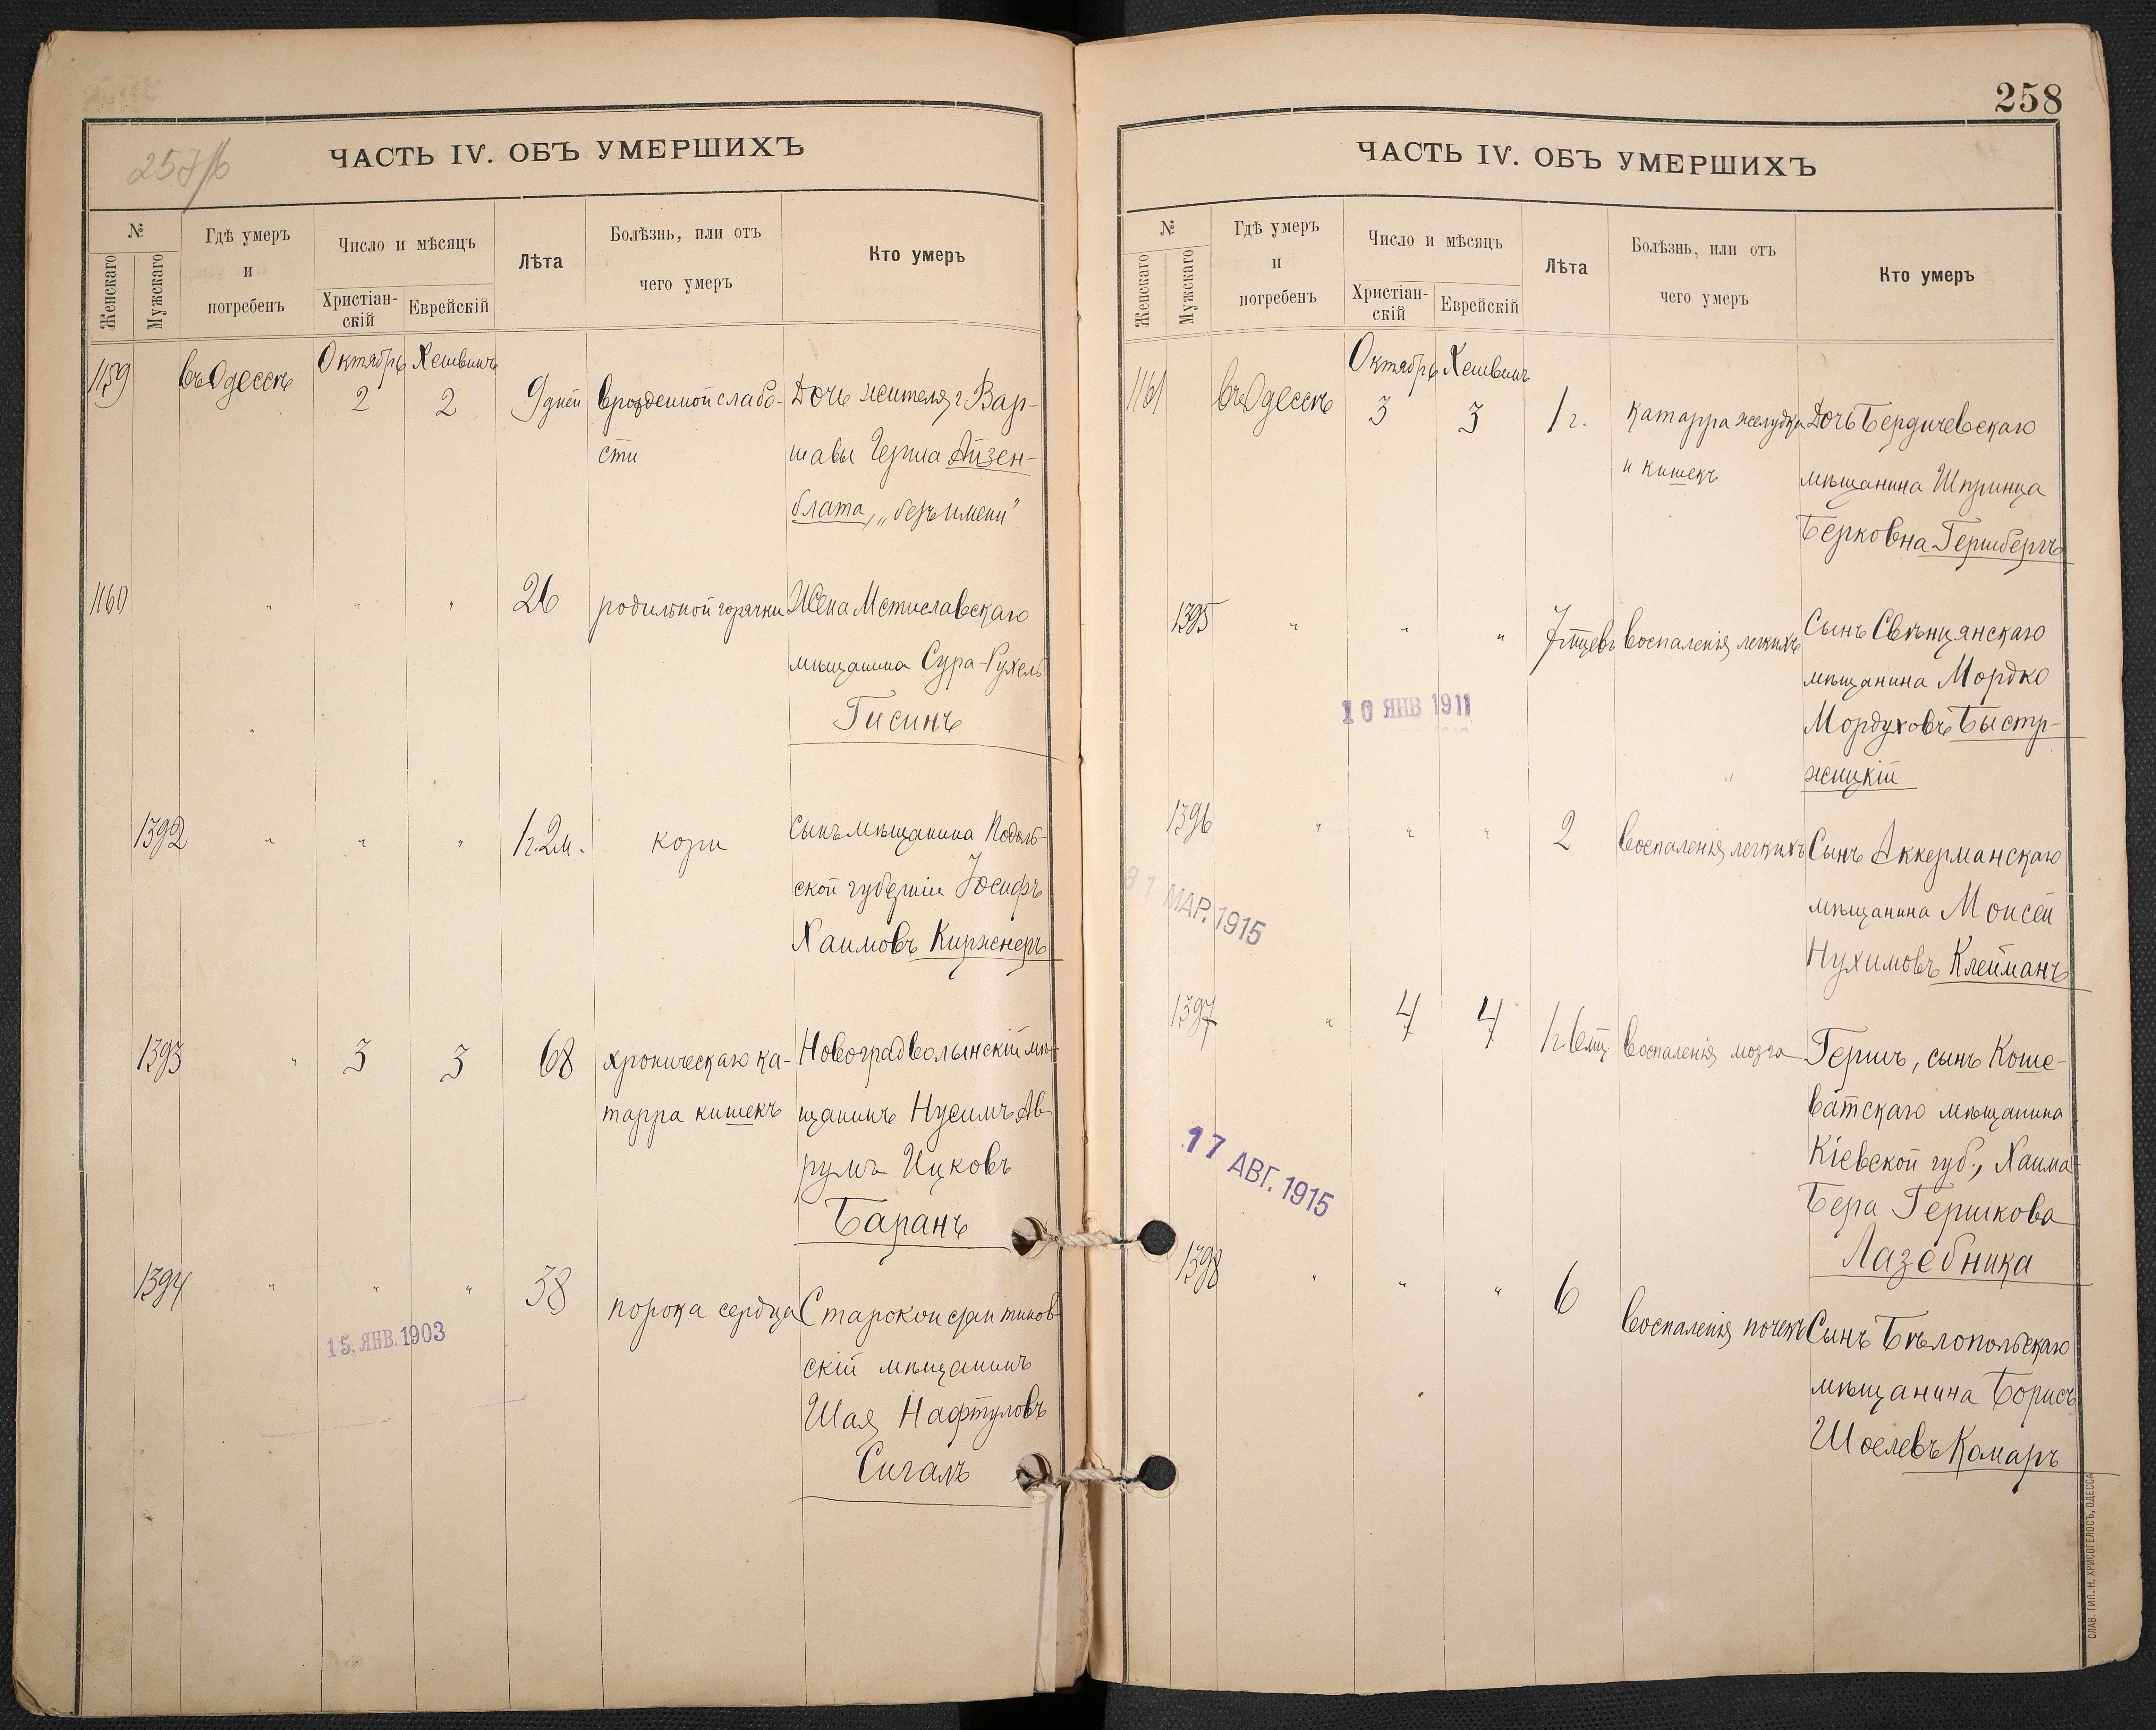 257/б
ЧАСТЬ IV. ОБЪ УМЕРШИХЪ
№
Женскаго
Мужскаго
Гдѣ умеръ
и
погребенъ
Число и мѣсяцъ
Христіан-
скій
Еврейскій
Лѣта
Болѣзнь, или отъ
чего умеръ
Кто умеръ
1159 въ Одессѣ Октябрь 2 Хешвинъ 2 9 дней врожденной слабо- Дочь жителя г. Вар-
сти шавы Герша Айзен-
блата, „безъ имени"
1160 " " " 26 родильной горячки Жена Мстиславскаго
мѣщанина Сура-Рухель
Гисинъ
1392 " " " 1 г. 2 м. кори Сынъ мѣщанина Подоль-
ской губерніи Іосифъ
Хаимовъ Киржнеръ
1393 " 3 3 68 хроническаго ка- Новоградволынскій мѣ-
тарра кишекъ щанинъ Нусимъ Ав-
румъ Ицковъ
Баранъ
1394 " " " 38 порока сердца Староконстантинов-
скій мѣщанинъ
Шая Нафтуловъ
Сигалъ
15. ЯНВ. 1903
258
ЧАСТЬ IV. ОБЪ УМЕРШИХЪ
№
Женскаго
Мужскаго
Гдѣ умеръ
и
погребенъ
Число и мѣсяцъ
Христіан-
скій
Еврейскій
Лѣта
Болѣзнь, или отъ
чего умеръ
Кто умеръ
1161 въ Одессѣ Октябрь 3 Хешвинъ 3 1 г. катарра желудка Дочь Бердичевскаго
и кишекъ мѣщанина Шпринца
Берковна Гершбергъ
1395 " " " 7 мцевъ воспаленія легкихъ Сынъ Свѣнцянскаго
мѣщанина Мордко
Мордуховъ Быстр-
жицкій
10 ЯНВ 1911
1396 " " " 2 воспаленія легкихъ Сынъ Аккерманскаго
мѣщанина Моисей
Нухимовъ Клейманъ
31 МАР. 1915
1397 " 4 4 1 г. 6 мц. воспаленія мозга Гершъ, сынъ Коше-
ватскаго мѣщанина
Кіевской губ., Хаима-
Бера Гершкова
Лазебника
17 АВГ. 1915
1398 " " " 6 воспаленія почекъ Сынъ Бѣлопольскаго
мѣщанина Борисъ
Шоелевъ Комаръ
СЛАВ. ТИП. Н. ХРИСОГЕЛОСЪ, ОДЕССА